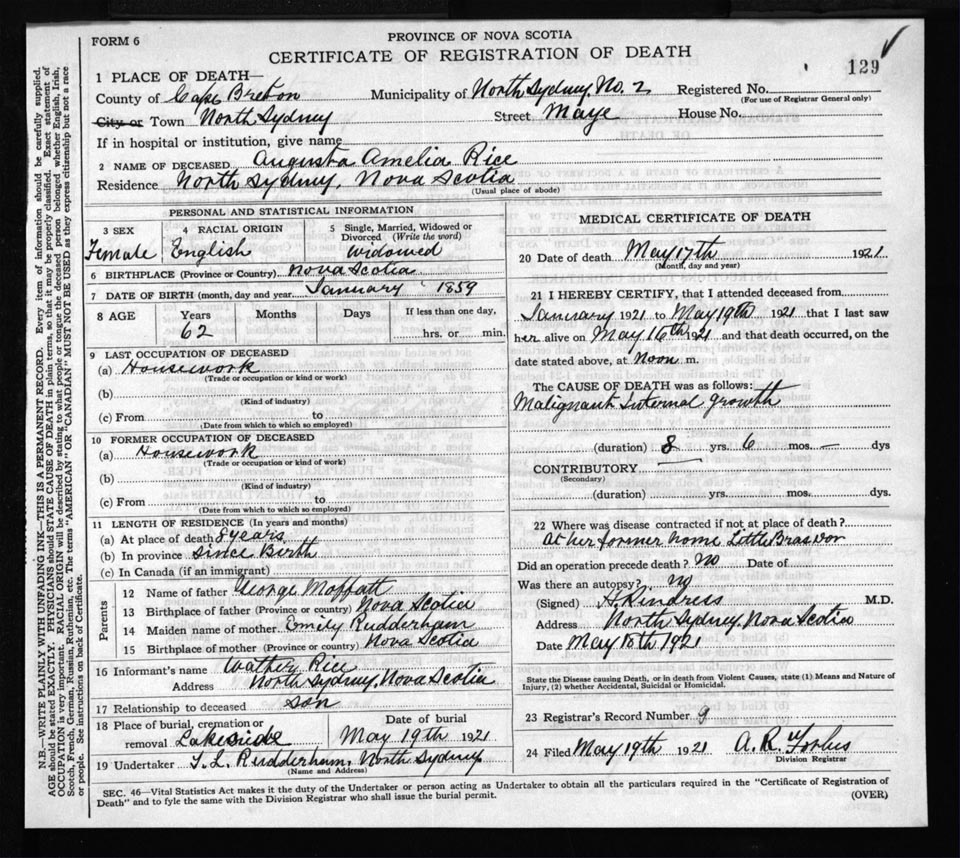 FORM 6
PROVINCE OF NOVA SCOTIA
CERTIFICATE OF REGISTRATION OF DEATH
129
1 PLACE OF DEATH—
County of Cape Breton Municipality of North Sydney, No. 2 Registered No.
(For use of Registrar General only)
City or Town North Sydney Street Maye House No.
If in hospital or institution, give name
2 NAME OF DECEASED Augusta Amelia Rice
Residence North Sydney, Nova Scotia
(Usual place of abode)
PERSONAL AND STATISTICAL INFORMATION
3 SEX Female
4 RACIAL ORIGIN English
5 Single, Married, Widowed or Divorced (Write the word) Widowed
6 BIRTHPLACE (Province or Country) Nova Scotia
7 DATE OF BIRTH (month, day and year) January 1859
8 AGE Years Months Days If less than one day,
62 hrs. or min.
9 LAST OCCUPATION OF DECEASED
(a) Housework
(Trade or occupation or kind or work)
(b)
(Kind of industry)
(c) From to
(Date from which to which so employed)
10 FORMER OCCUPATION OF DECEASED
(a) Housework
(Trade or occupation or kind of work)
(b)
(Kind of industry)
(c) From to
(Date from which to which so employed)
11 LENGTH OF RESIDENCE (In years and months)
(a) At place of death 8 years
(b) In province since Birth
(c) In Canada (if an immigrant)
Parents
12 Name of father George Moffatt
13 Birthplace of father (Province or country) Nova Scotia
14 Maiden name of mother Emily Rudderham
15 Birthplace of mother (Province or country) Nova Scotia
16 Informant's name Rice
Address North Sydney, Nova Scotia
17 Relationship to deceased son
18 Place of burial, cremation or removal Lakeside
Date of burial May 19th 1921
19 Undertaker T. L. Rudderham, North Sydney
(Name and Address)
MEDICAL CERTIFICATE OF DEATH
20 Date of death May 17th 1921
(Month, day and year)
21 I HEREBY CERTIFY, that I attended deceased from
January 1921 to May 19th 1921 that I last saw
her alive on May 16th 1921 and that death occurred, on the
date stated above, at Noon m.
The CAUSE OF DEATH was as follows:
Malignant Internal growth
(duration) 8 yrs. 6 mos. — dys
CONTRIBUTORY
(Secondary)
(duration) yrs. mos. dys.
22 Where was disease contracted if not at place of death?
At her former home Little Bras dor
Did an operation precede death? No Date of
Was there an autopsy? no
(Signed) M.D.
Address North Sydney, Nova Scotia
Date May 1921
State the Disease causing Death, or in death from Violent Causes, state (1) Means and Nature of
Injury, (2) whether Accidental, Suicidal or Homicidal.
23 Registrar's Record Number 9
24 Filed May 19th 1921 A. R. Forbes
Division Registrar
SEC. 46—Vital Statistics Act makes it the duty of the Undertaker or person acting as Undertaker to obtain all the particulars required in the "Certificate of Registration of
Death" and to fyle the same with the Division Registrar who shall issue the burial permit.
(OVER)
N.B.—WRITE PLAINLY WITH UNFADING INK—THIS IS A PERMANENT RECORD. Every item of information should be carefully supplied.
AGE should be stated EXACTLY. PHYSICIANS should STATE CAUSE OF DEATH in plain terms, so that it may be properly classified. Exact statement of
OCCUPATION is very important. RACIAL ORIGIN will be described by stating to what people or tongue the deceased person belonged whether English, Irish,
Scotch, French, German, Russian, Ruthenian, etc. The terms "AMERICAN" OR "CANADIAN" MUST NOT BE USED as they express citizenship but not a race
or people. See instructions on back of Certificate.